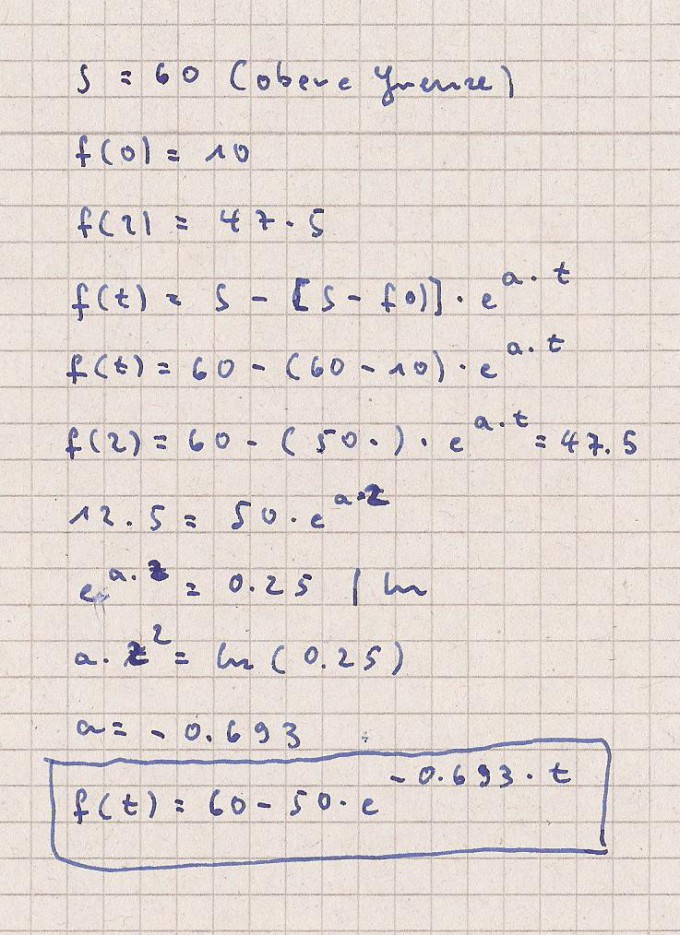 S = 60 (obere Grenze)
f(0) = 10
f(2) = 47.5
f(t) = S - [S - f0)] · e^a·t
f(t) = 60 - (60 - 10) · e^a·t
f(2) = 60 - (50·) · e^a·t = 47.5
12.5 = 50 · e^a·2
e^a·2 = 0.25 | ln
a · 2 = ln (0.25)
a = -0.693
f(t) = 60 - 50 · e^-0.693 · t